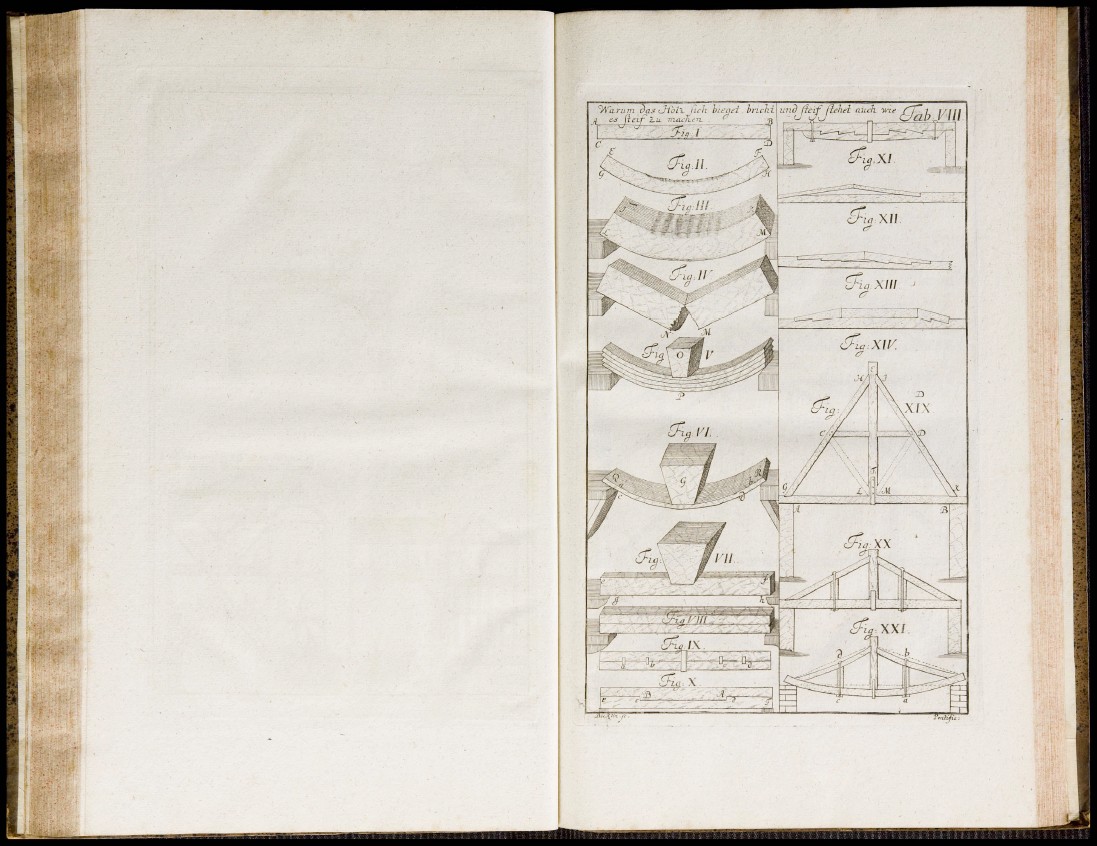 Warum das Holz sich bieget bricht und steif stehet auch wie Tab. VIII
es steif zu machen
A B
Fig. I
C D
E F
Fig. II
G H
Fig. III
M
Fig. IV
N M
Fig. O V
P
Fig. VI
Q R
a b
G
c d
Fig. VII
f
g h
Fig. VIII
Fig. IX
b
Fig. X
B A
Fig. XI
Fig. XII
Fig. XIII
Fig. XIV.
H J
D
Fig. XIX
C D
G L M K
A B
Fig. XX
Fig. XXI
a b
c d